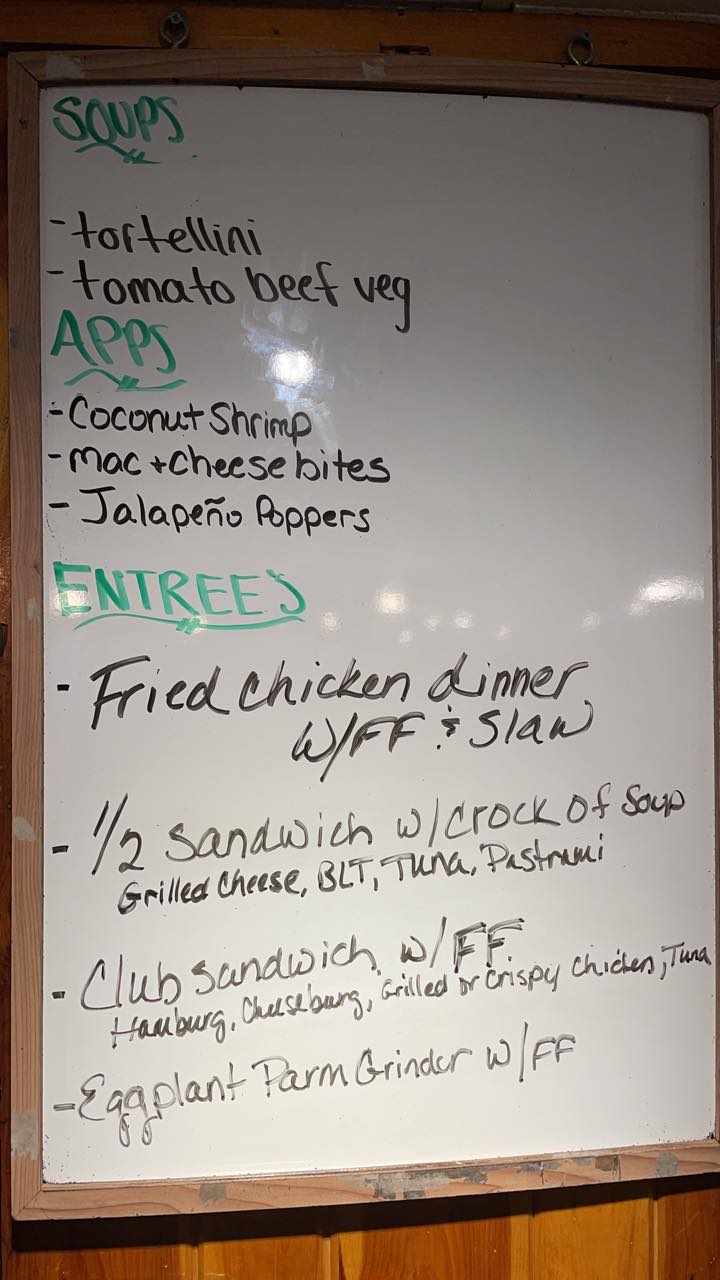 SOUPS
- tortellini
- tomato beef veg
APPS
- Coconut Shrimp
- Mac + Cheese bites
- Jalapeño Poppers
ENTREES
- Fried chicken dinner
W/FF & Slaw
- 1/2 Sandwich w/Crock of Soup
Grilled Cheese, BLT, Tuna, Pastrami
- Club Sandwich w/FF
Hamburg, Cheeseburg, Grilled or Crispy Chicken, Tuna
- Eggplant Parm Grinder w/FF